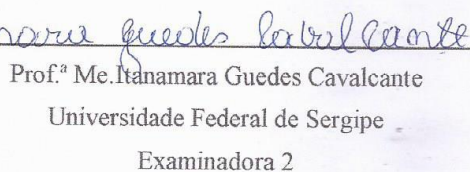 guedes Cavalcante
Prof.ª Me.Itanamara Guedes Cavalcante
Universidade Federal de Sergipe
Examinadora 2